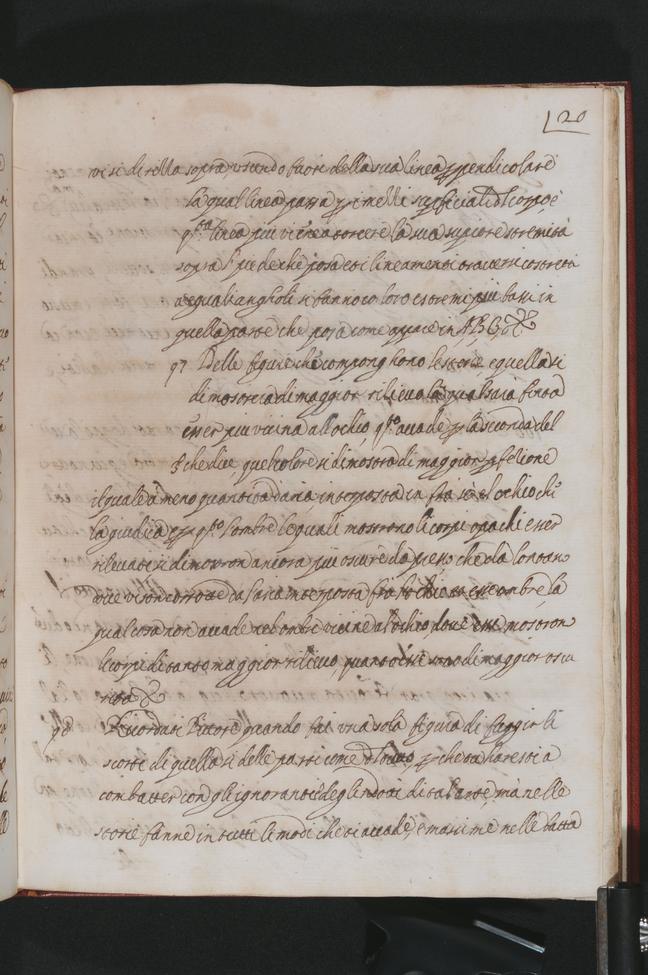 20
vi si di sella sopra usando fuori della sua linea ppendicolare
la qual linea passa p i melli superficiali dl corpo, e
qta linea piu viene a torcere la sua supiore stremità
sopra l piede che posa et i lineamenti traversi costretti
a eguali angholi si fanno co loro estremi piu bassi in
quella parte che posa come appare in A,B,C,
97 Delle figure che compong hono le storie e quella si
di mostrera di maggior rilievo la quale saia finta
esser piu vicina all ochio, qto accade p la seconda del
che dice, quel colore si dimostra di maggior pfetione
il quale à meno quantita d aria, interposta in fra se el ochio chi
la giudica et p qto l ombre le quali mostrono li corpi opachi esser
rilevati si dimostron ancora piu oscure da presso che da lontano
dove vi son corrotte da l aria interposta fra l ochio et esse ombre, la
qual cosa non accade ne l ombre vicine al ochio, dove esse mostron
li corpi di tanto maggior rilievo, quanto esse sono di maggior oscu
rità
98 Ricordati Pittore quando fai una sola figura di fuggir li
scorti di quella si delle parti come d l tutto, p che tu haresti a
combatter con gli ignoranti degli doti di tal arte, mà nelle
storie fanne in tutti li modi che ti accade, e massime nelle batta